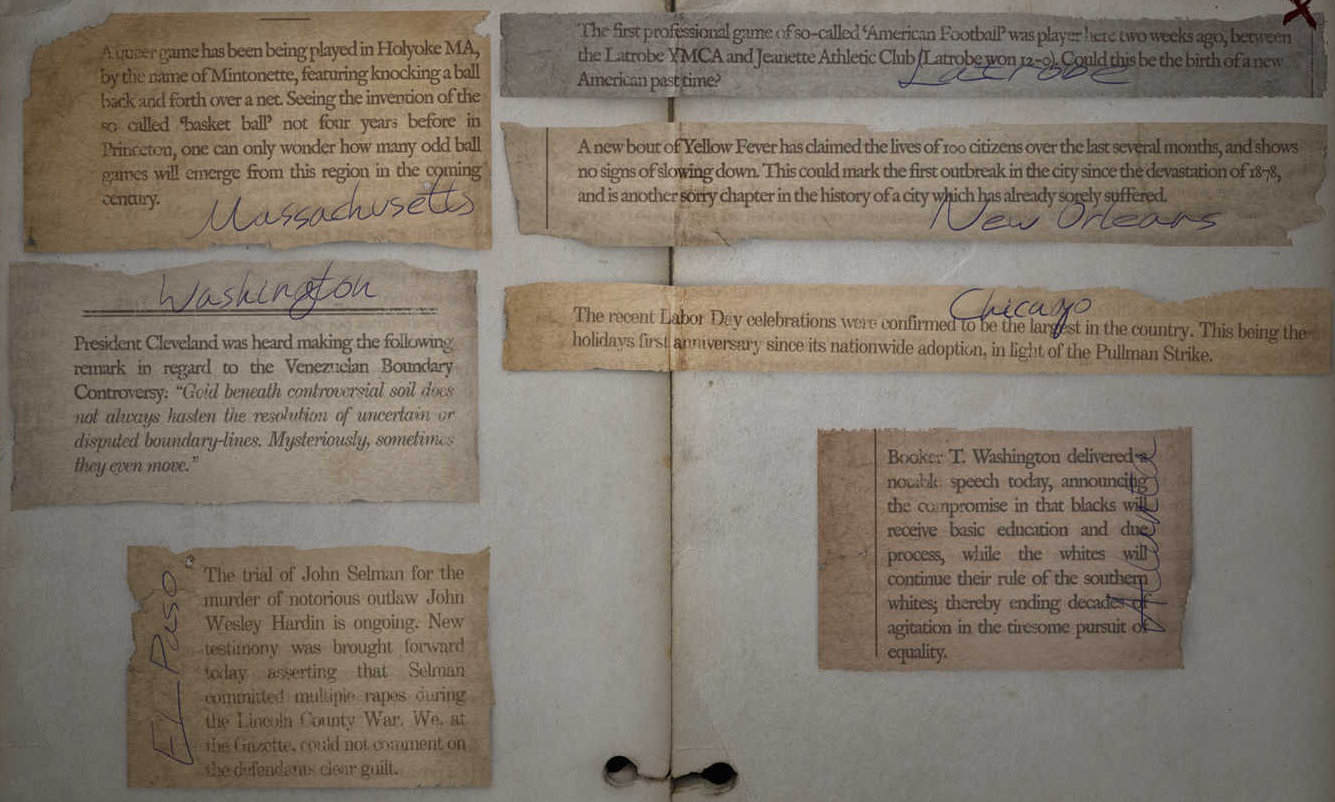 A queer game has been being played in Holyoke MA,
by the name of Mintonette, featuring knocking a ball
back and forth over a net. Seeing the invention of the
so called 'basket ball' not four years before in
Princeton, one can only wonder how many odd ball
games will emerge from this region in the coming
century.
Massachusetts
Washington
President Cleveland was heard making the following
remark in regard to the Venezuelan Boundary
Controversy: "Gold beneath controversial soil does
not always hasten the resolution of uncertain or
disputed boundary-lines. Mysteriously, sometimes
they even move."
El Paso
The trial of John Selman for the
murder of notorious outlaw John
Wesley Hardin is ongoing. New
testimony was brought forward
today asserting that Selman
committed multiple rapes during
the Lincoln County War. We, at
the Gazette, could not comment on
the defendants clear guilt.
The first professional game of so-called 'American Football' was player here two weeks ago, between
the Latrobe YMCA and Jeanette Athletic Club (Latrobe won 12-0). Could this be the birth of a new
American past time?
Latrobe
A new bout of Yellow Fever has claimed the lives of 100 citizens over the last several months, and shows
no signs of slowing down. This could mark the first outbreak in the city since the devastation of 1878,
and is another sorry chapter in the history of a city which has already sorely suffered.
New Orleans
Chicago
The recent Labor Day celebrations were confirmed to be the largest in the country. This being the
holidays first anniversary since its nationwide adoption, in light of the Pullman Strike.
Booker T. Washington delivered a
notable speech today, announcing
the compromise in that blacks will
receive basic education and due
process, while the whites will
continue their rule of the southern
whites; thereby ending decades of
agitation in the tiresome pursuit of
equality.
Atlanta